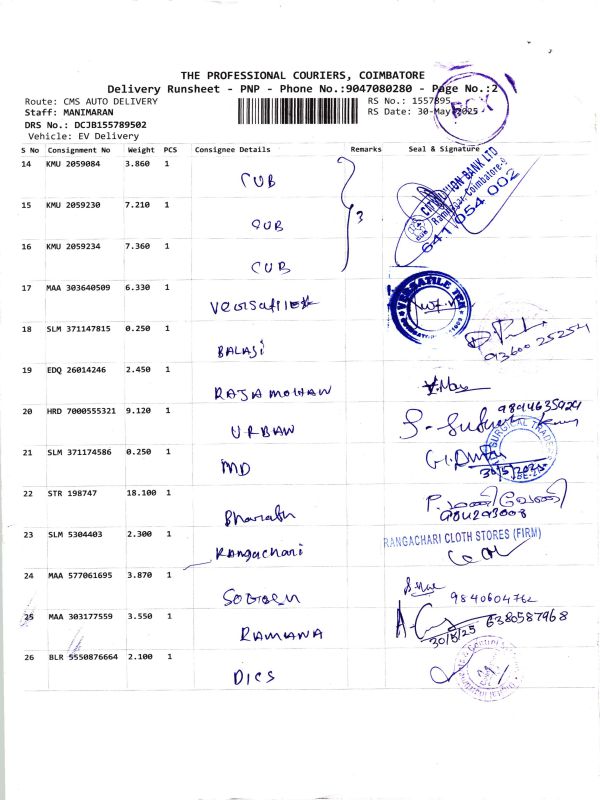 THE PROFESSIONAL COURIERS, COIMBATORE
Delivery Runsheet - PNP - Phone No.:9047080280 - Page No.:2
Route: CMS AUTO DELIVERY RS No.: 1557895
Staff: MANIMARAN RS Date: 30-May-2025
DRS No.: DCJB155789502
Vehicle: EV Delivery
BOX
S No Consignment No Weight PCS Consignee Details Remarks Seal & Signature
14 KMU 2059084 3.860 1 CUB
15 KMU 2059230 7.210 1 CUB 3
16 KMU 2059234 7.360 1 CUB
CITY UNION BANK LTD
Ramnagar, Coimbatore-9
641 054 002
17 MAA 303640509 6.330 1 Versatile
VERSATILE TEX
18 SLM 371147815 0.250 1 BALAJI
93600 25254
19 EDQ 26014246 2.450 1 RAJAMOHAN
20 HRD 7000555321 9.120 1 URBAN 9894635924
21 SLM 371174586 0.250 1 MD
SURGICAL TRADERS
30/5/2025
22 STR 198747 18.100 1 Bharath
23 SLM 5304403 2.300 1 Rangachari
RANGACHARI CLOTH STORES (FIRM)
24 MAA 577061695 3.870 1
9840604762
25 MAA 303177559 3.550 1 RAMANA
30/5/25 6380587968
26 BLR 5550876664 2.100 1 DICS